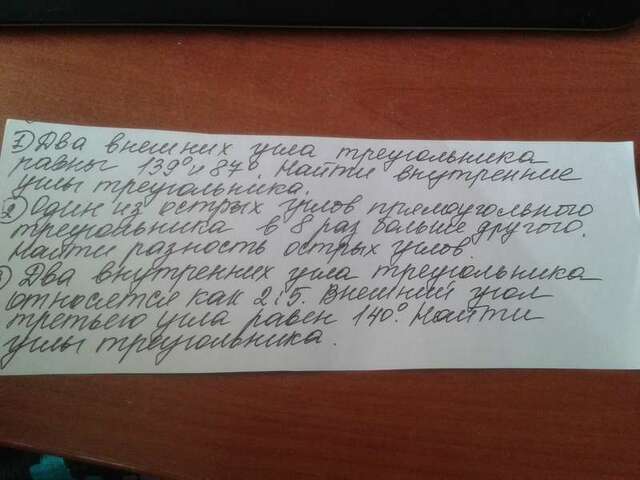 1) Два внешних угла треугольника
равны 139° и 87°. Найти внутренние
углы треугольника.
2) Один из острых углов прямоугольного
треугольника в 8 раз больше другого.
Найти разность острых углов.
3) Два внутренних угла треугольника
относятся как 2:5. Внешний угол
третьего угла равен 140°. Найти
углы треугольника.